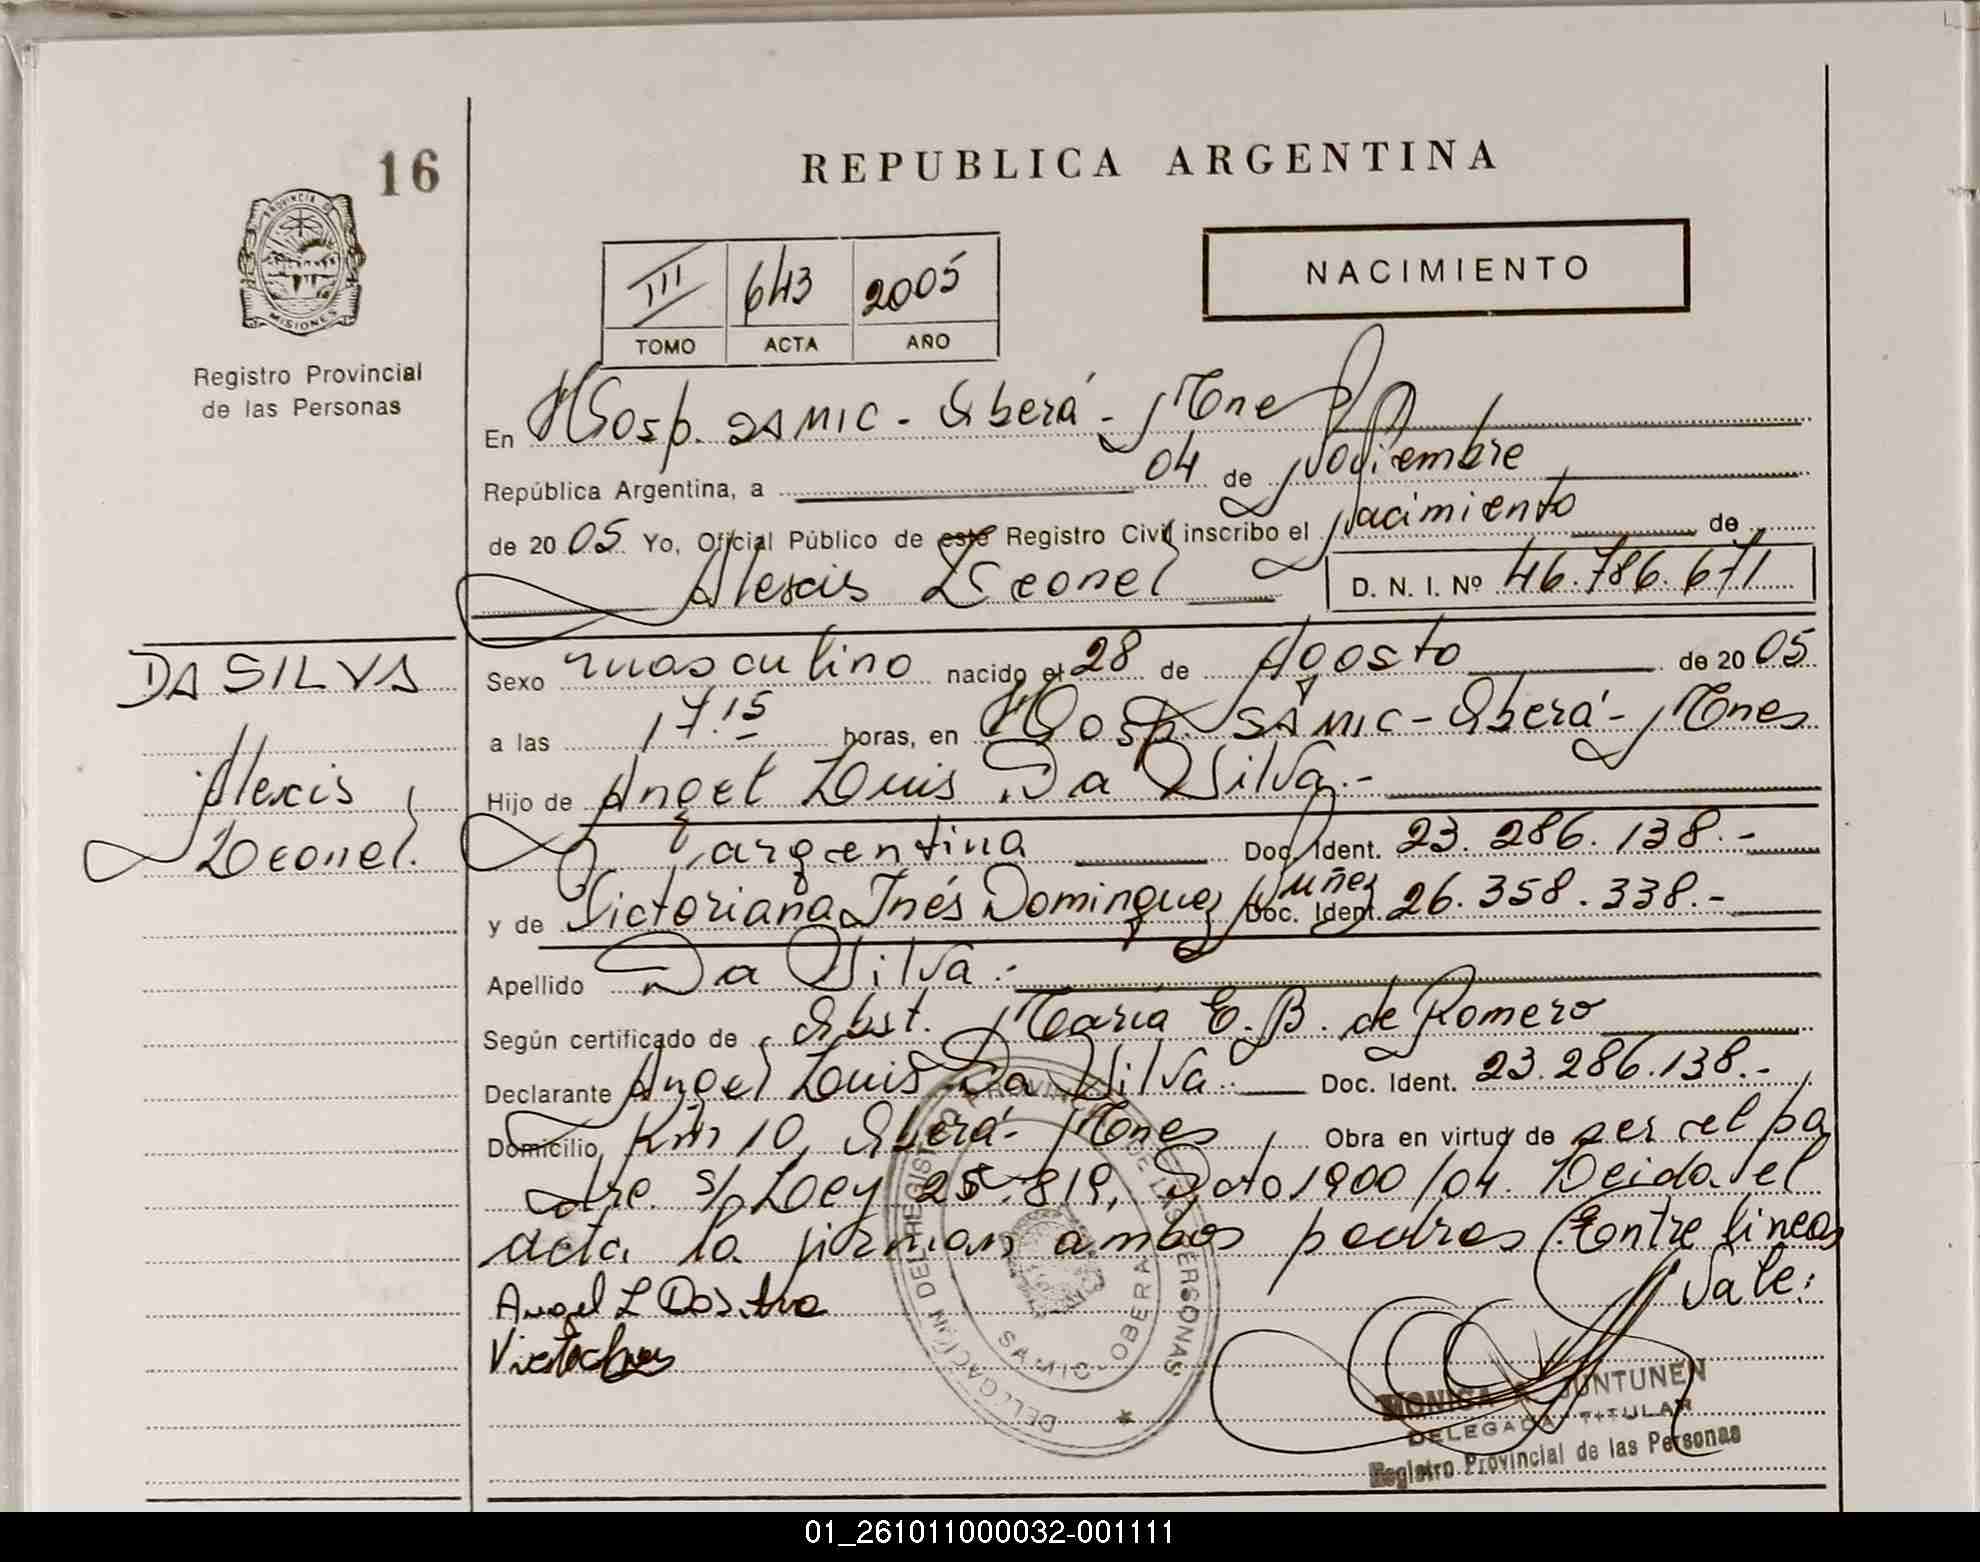 16
REPUBLICA ARGENTINA
PROVINCIA DE
MISIONES
Registro Provincial
de las Personas
III 643 2005
TOMO ACTA AÑO
NACIMIENTO
En Hosp. SAMIC - Oberá - Mnes
República Argentina, a 04 de Noviembre
de 2005 Yo, Oficial Público de este Registro Civil inscribo el nacimiento de
Alexis Leonel D. N. I. Nº 46.786.671
DA SILVA
Alexis
Leonel.
Sexo masculino nacido el 28 de Agosto de 2005
a las 17.15 horas, en Hosp. SAMIC - Oberá - Mnes
Hijo de Angel Luis Da Silva.-
argentina Doc. Ident. 23.286.138.-
y de Victoriana Inés Dominguez Nuñez Doc. Ident. 26.358.338.-
Apellido Da Silva.-
Según certificado de Obst. María E. B. de Romero
Declarante Angel Luis Da Silva.- Doc. Ident. 23.286.138.-
Domicilio Km 10, Oberá - Mnes Obra en virtud de ser el pa
dre. s/Ley 25.819, Dcto 1900/04. Leida el
acta la firman ambos padres Entre lineas
Vale:
Angel L Dasilva
DELEGACIÓN DEL REGISTRO PROVINCIAL DE LAS PERSONAS
OBERA
MONICA JUNTUNEN
DELEGADA TITULAR
Registro Provincial de las Personas
01_261011000032-001111